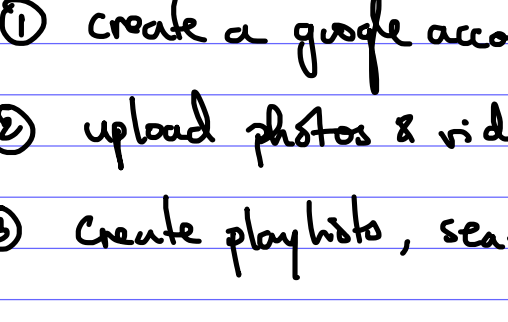 ① create a google acco
② upload photos & vid
③ create playlists, sea